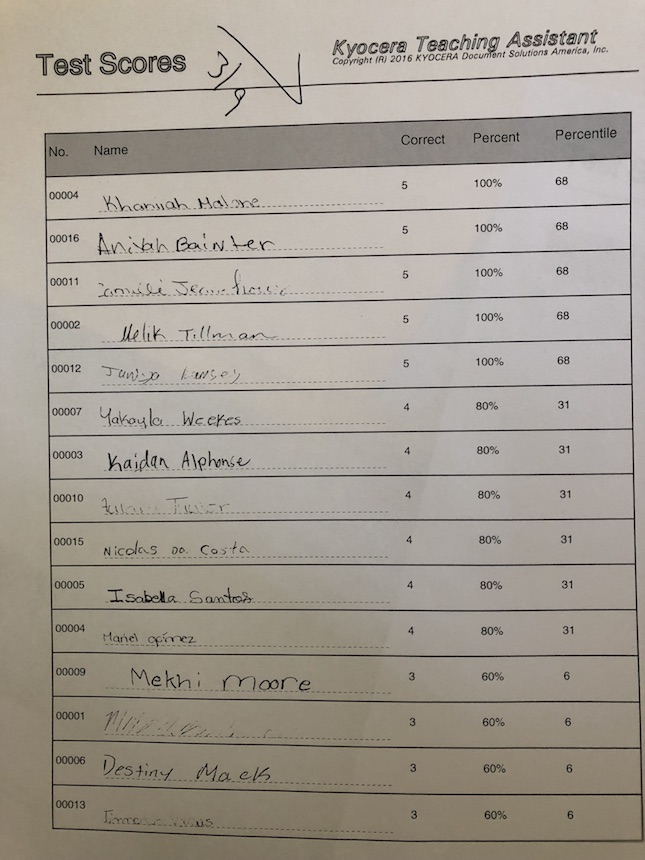 Test Scores
3/9
Kyocera Teaching Assistant
Copyright (R) 2016 KYOCERA Document Solutions America, Inc.
No. Name Correct Percent Percentile
00004 Malone 5 100% 68
00016 Aniyah Bainter 5 100% 68
00011 5 100% 68
00002 Melik Tillman 5 100% 68
00012 5 100% 68
00007 Yakayla Weekes 4 80% 31
00003 Kaidan Alphonse 4 80% 31
00010 4 80% 31
00015 Nicolas Da Costa 4 80% 31
00005 Isabella Santos 4 80% 31
00004 4 80% 31
00009 Mekhi Moore 3 60% 6
00001 3 60% 6
00006 Destiny Mack 3 60% 6
00013 3 60% 6